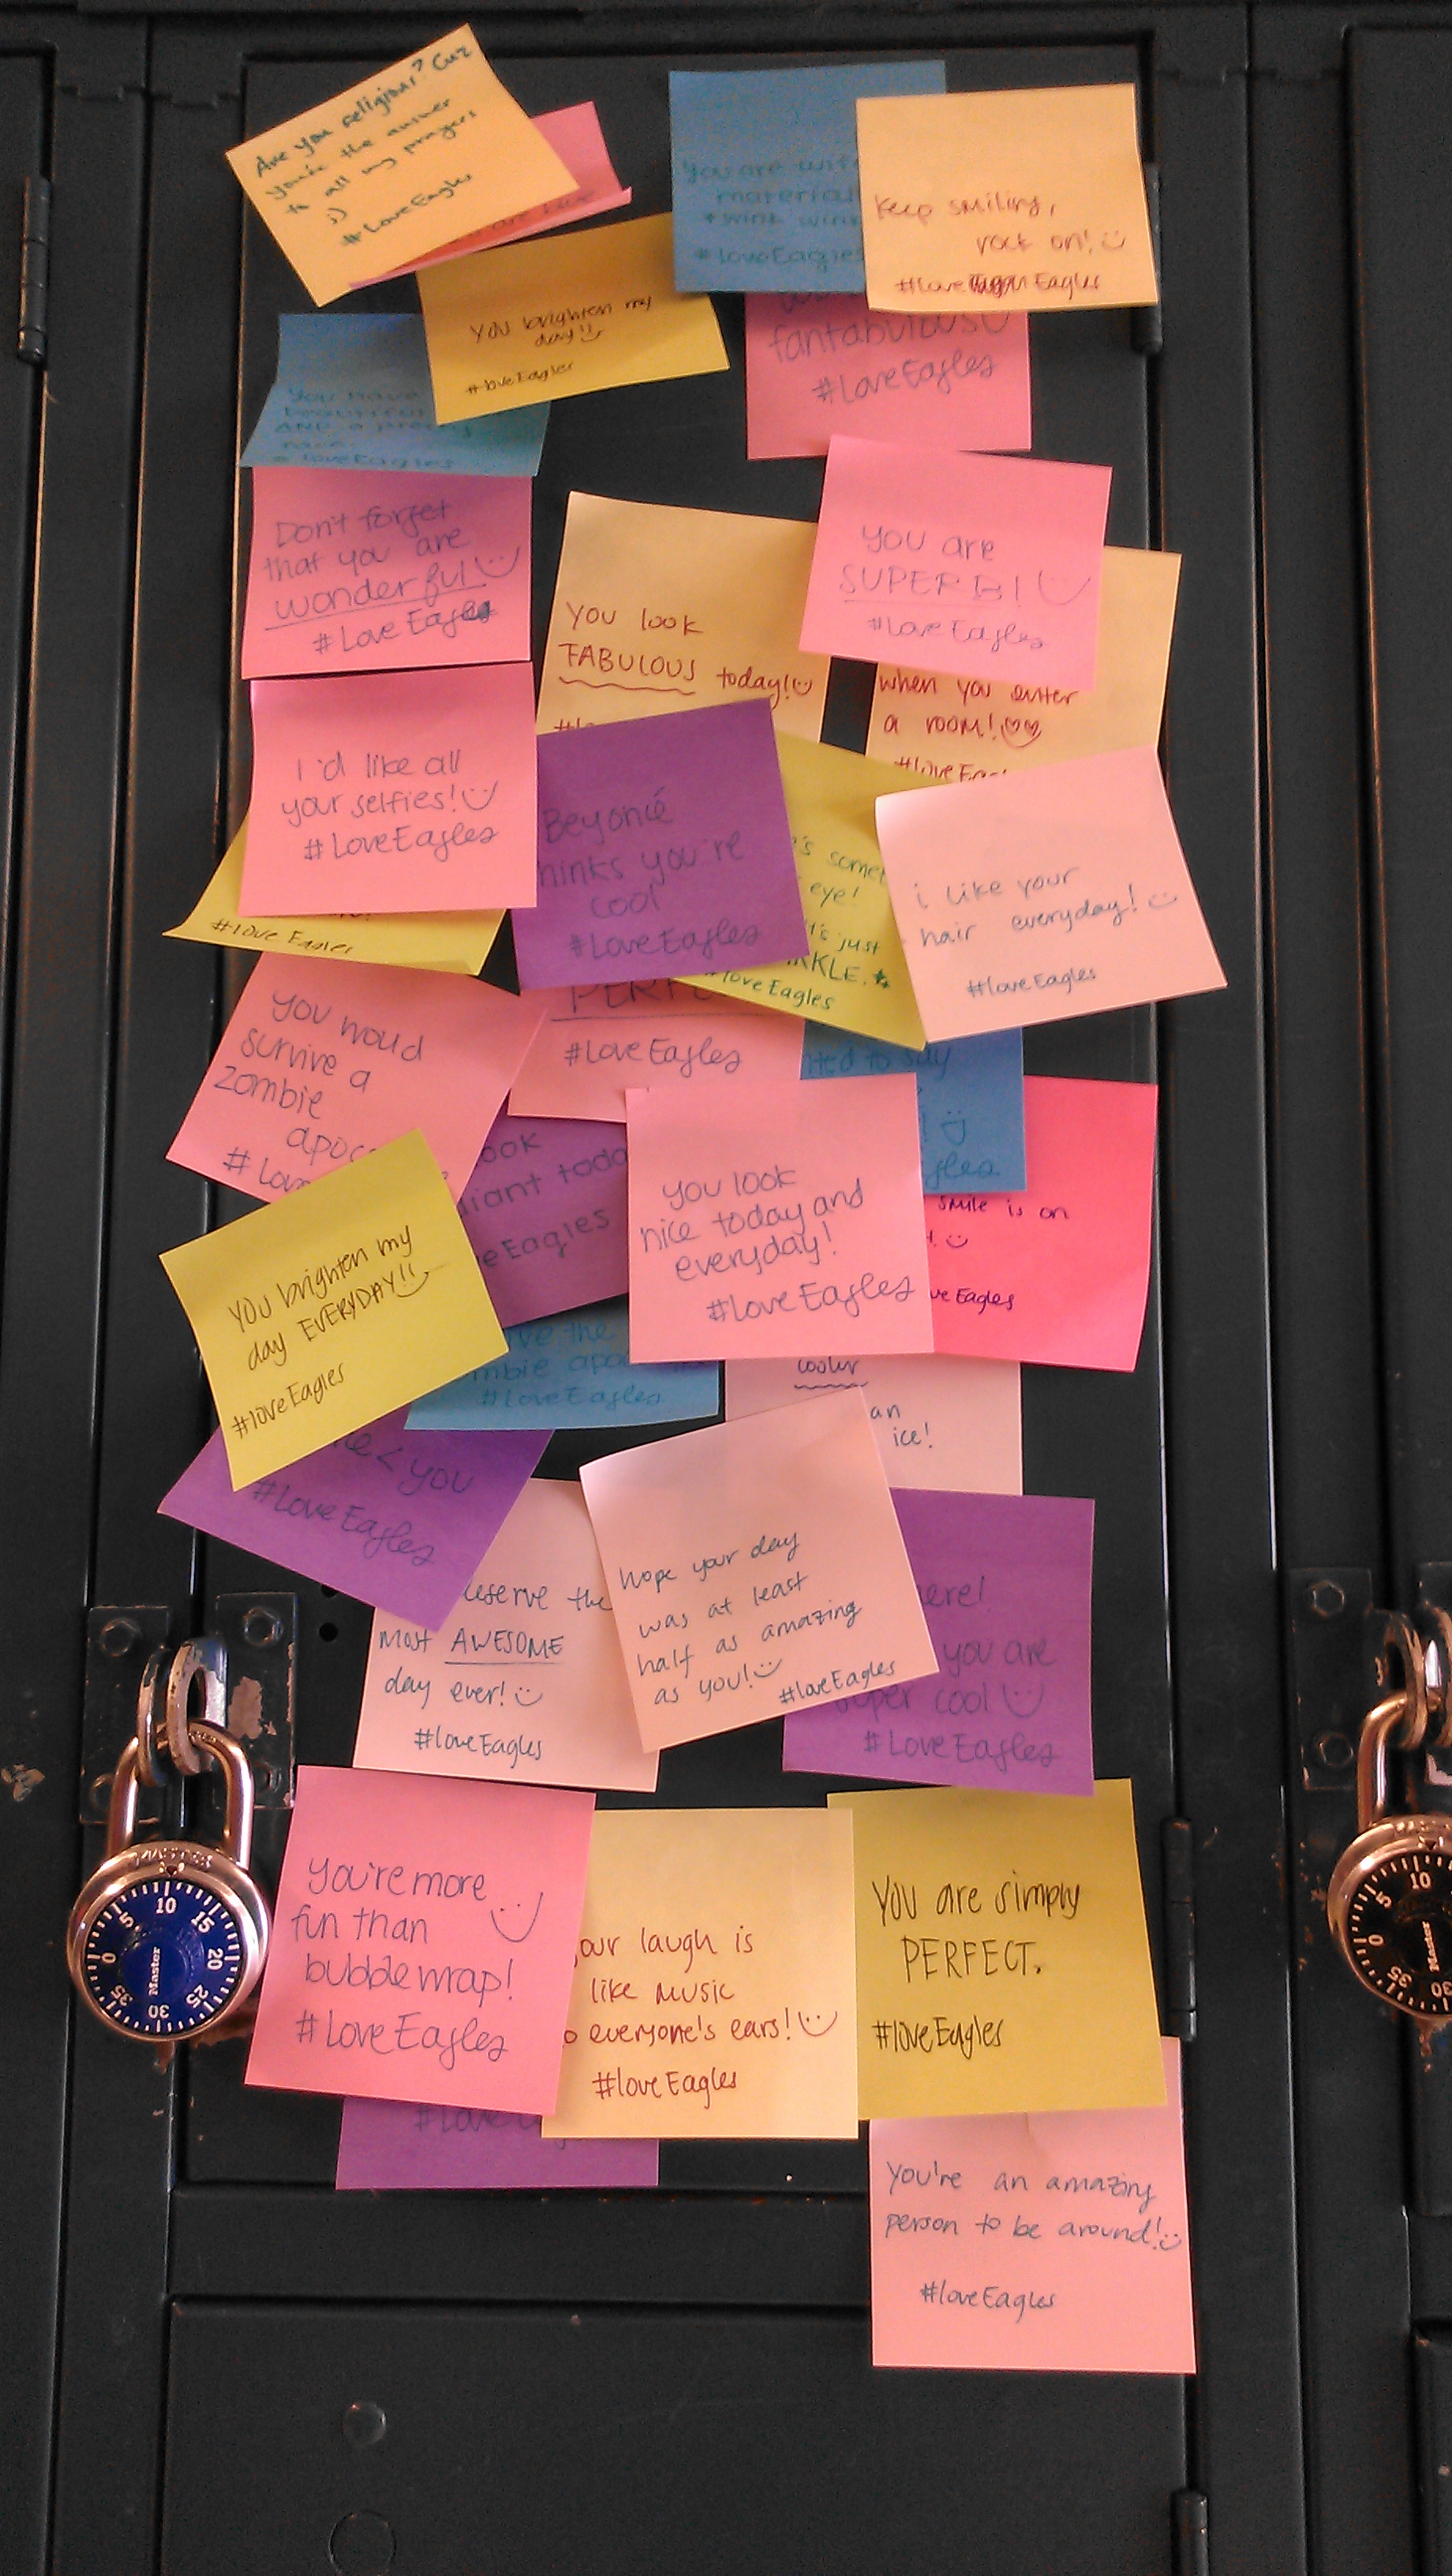 Are you religious? Cuz
you're the answer
to all my prayers
:)
#LoveEagles
are
You are wife
material
*wink wink
#LoveEagles
Keep smiling,
rock on!
#Love Eagles
You brighten my
day!!
#loveEagles
fantabulous
#LoveEagles
You have
beautiful
AND a pretty
#LoveEagles
Don't forget
that you are
wonderful
#LoveEagles
You look
FABULOUS today!
You are
SUPERB!
#LoveEagles
when you enter
a room!
#love
I'd like all
your selfies!
#LoveEagles
#love Eagles
Beyoncé
hinks you're
cool
#LoveEagles
's somet
eye!
It's just
RKLE.
#loveEagles
i like your
hair everyday!
#loveEagles
You woud
survive a
zombie
apoc
#Lov
PERFE
#LoveEagles
ted to say
gles
ook
liant toda
eEagles
You look
nice today and
everyday!
#LoveEagles
smile is on
ve Eagles
You brighten my
day EVERYDAY!!
#loveEagles
ive the
mbie apo
#LoveEagles
cooler
an
ice!
< you
#LoveEagles
deserve the
most AWESOME
day ever!
#loveEagles
Hope your day
was at least
half as amazing
as you!
#loveEagles
ere!
you are
super cool
#LoveEagles
You're more
fun than
bubblewrap!
#LoveEagles
your laugh is
like music
o everyone's ears!
#loveEagles
You are simply
PERFECT.
#loveEagles
#Love
You're an amazing
person to be around!
#loveEagles
MASTER
0 5 10 15 20 25 30 35
Master
0 5 10 30 35
Master